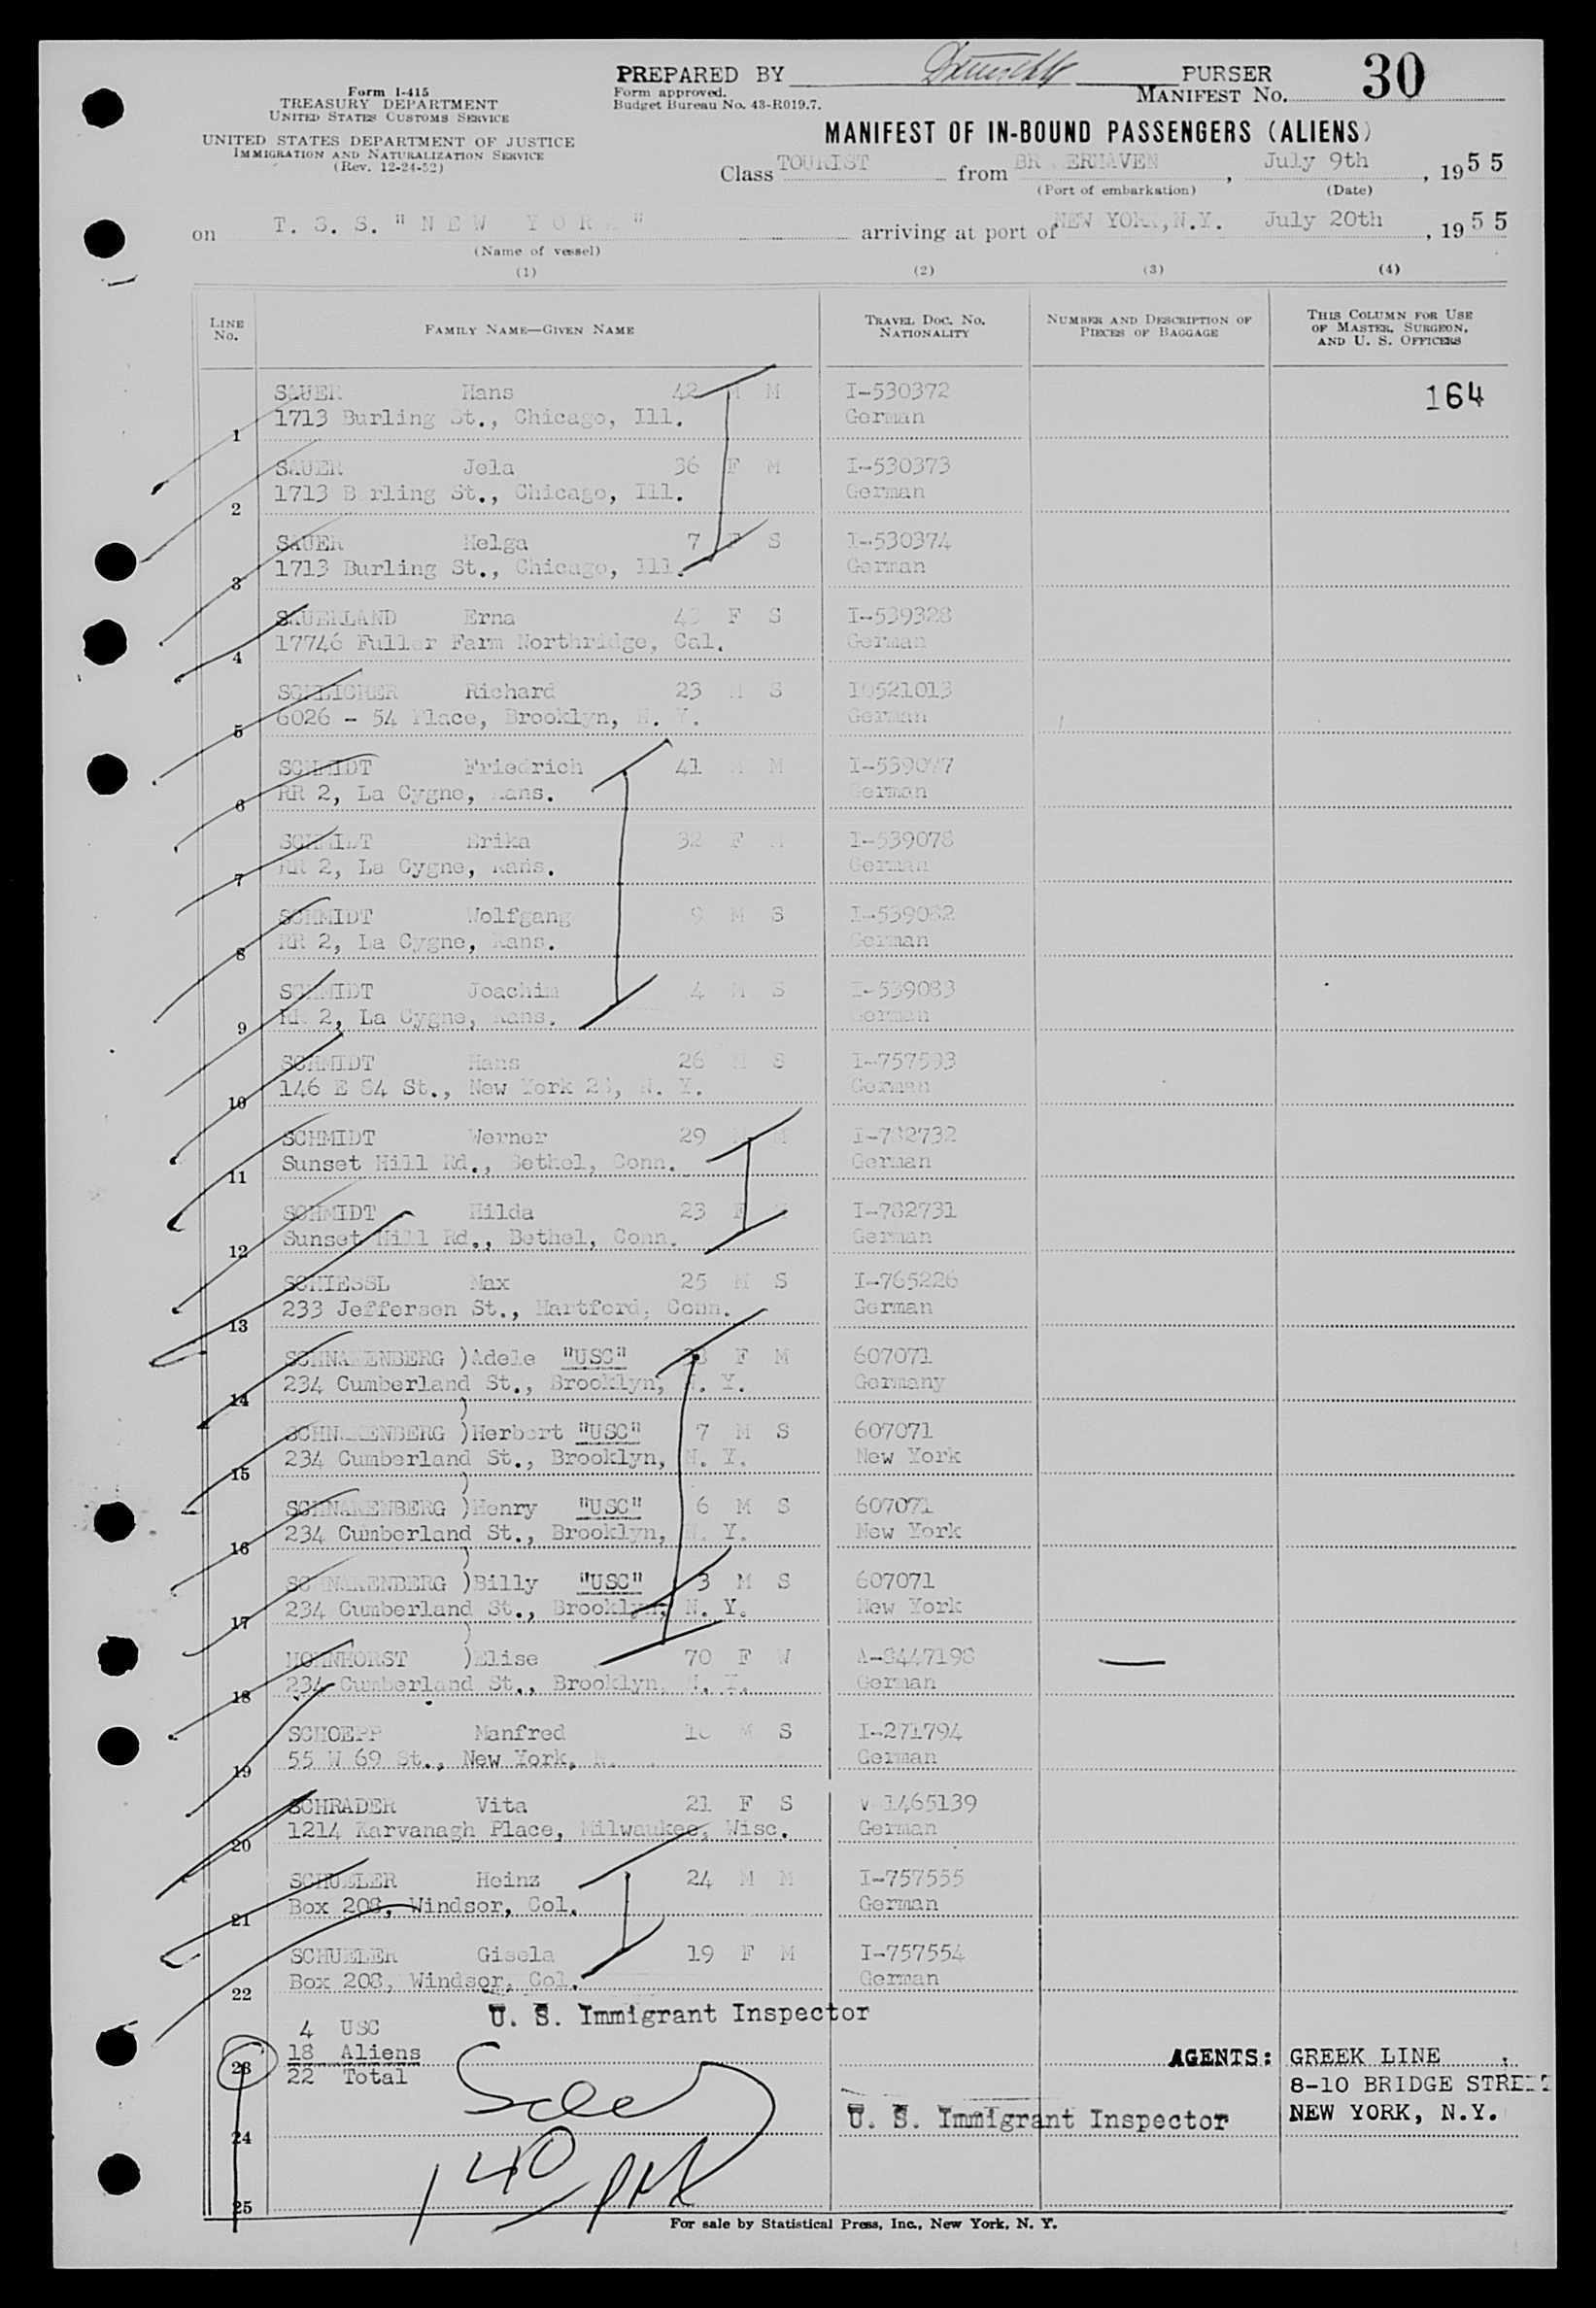 PREPARED BY PURSER
Form 1-415
TREASURY DEPARTMENT
UNITED STATES CUSTOMS SERVICE
UNITED STATES DEPARTMENT OF JUSTICE
IMMIGRATION AND NATURALIZATION SERVICE
(Rev. 12-24-52)
Form approved.
Budget Bureau No. 43-R019.7.
MANIFEST No. 30
MANIFEST OF IN-BOUND PASSENGERS (ALIENS)
Class TOURIST from BR ERHAVEN, July 9th, 1955
(Port of embarkation) (Date)
on T. S. S. "NEW YORK" arriving at port of NEW YORK, N.Y. July 20th, 1955
(Name of vessel)
(1) (2) (3) (4)
LINE No. FAMILY NAME—GIVEN NAME TRAVEL DOC. NO. NATIONALITY NUMBER AND DESCRIPTION OF PIECES OF BAGGAGE THIS COLUMN FOR USE OF MASTER, SURGEON, AND U. S. OFFICERS
SAUER Hans 42 M M I-530372 164
1 1713 Burling St., Chicago, Ill. German
SAUER Jela 36 F M I-530373
2 1713 B rling St., Chicago, Ill. German
SAUER Helga 7 F S I-530374
3 1713 Burling St., Chicago, Ill. German
SAUERLAND Erna F S I-539328
4 17746 Fuller Farm Northridge, Cal. German
SCHLICHER Richard 23 M S I0521013
5 6026 - 54 Place, Brooklyn, N. Y. German
SCHMIDT Friedrich 41 M M I-539077
6 RR 2, La Cygne, Kans. German
SCHMIDT Erika 32 F M I-539078
7 RR 2, La Cygne, Kans. German
SCHMIDT Wolfgang 9 M S I-539082
8 RR 2, La Cygne, Kans. German
SCHMIDT Joachim 4 M S I-539083
9 RR 2, La Cygne, Kans. German
SCHMIDT Hans 26 M S I-757593
10 146 E 84 St., New York N. Y. German
SCHMIDT Werner 29 M M I-782732
11 Sunset Hill Rd., Bethel, Conn. German
SCHMIDT Hilda 23 F I-782731
12 Sunset Hill Rd., Bethel, Conn. German
SCHIESSL Max 25 M S I-765226
13 233 Jefferson St., Hartford, Conn. German
SCHNAKENBERG )Adele "USC" F M 607071
14 234 Cumberland St., Brooklyn, N. Y. Germany
SCHNAKENBERG )Herbert "USC" 7 M S 607071
15 234 Cumberland St., Brooklyn, N. Y. New York
SCHNAKENBERG )Henry "USC" 6 M S 607071
16 234 Cumberland St., Brooklyn, N. Y. New York
SCHNAKENBERG )Billy "USC" 3 M S 607071
17 234 Cumberland St., Brooklyn, N. Y. New York
HORNHORST )Elise 70 F W A-8447198
18 234 Cumberland St., Brooklyn, N. Y. German
SCHOEPP Manfred M S I-271794
19 55 W 69 St., New York, N. German
SCHRADER Vita 21 F S V 1465139
20 1214 Karvanagh Place, Milwaukee, Wisc. German
SCHUELER Heinz 24 M M I-757555
21 Box 208, Windsor, Col. German
SCHUELER Gisela 19 F M I-757554
22 Box 208, Windsor, Col. German
U. S. Immigrant Inspector
4 USC
18 Aliens
23 22 Total
AGENTS: GREEK LINE
8-10 BRIDGE STREET
NEW YORK, N.Y.
U. S. Immigrant Inspector
24
1 40 PM
25
For sale by Statistical Press, Inc., New York, N. Y.